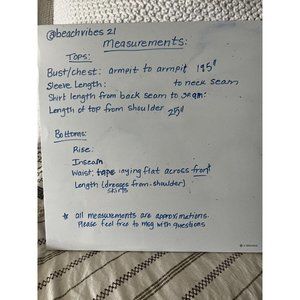 @beachvibes 21
Measurements:
Tops:
Bust/chest: armpit to armpit 19.5"
Sleeve Length: to neck seam
Shirt length from back seam to seam:
Length of top from shoulder 25"
Bottoms:
Rise:
Inseam
Waist: tape laying flat across front
Length (dresses from shoulder)
skirts
* all measurements are approximations.
Please feel free to msg with questions